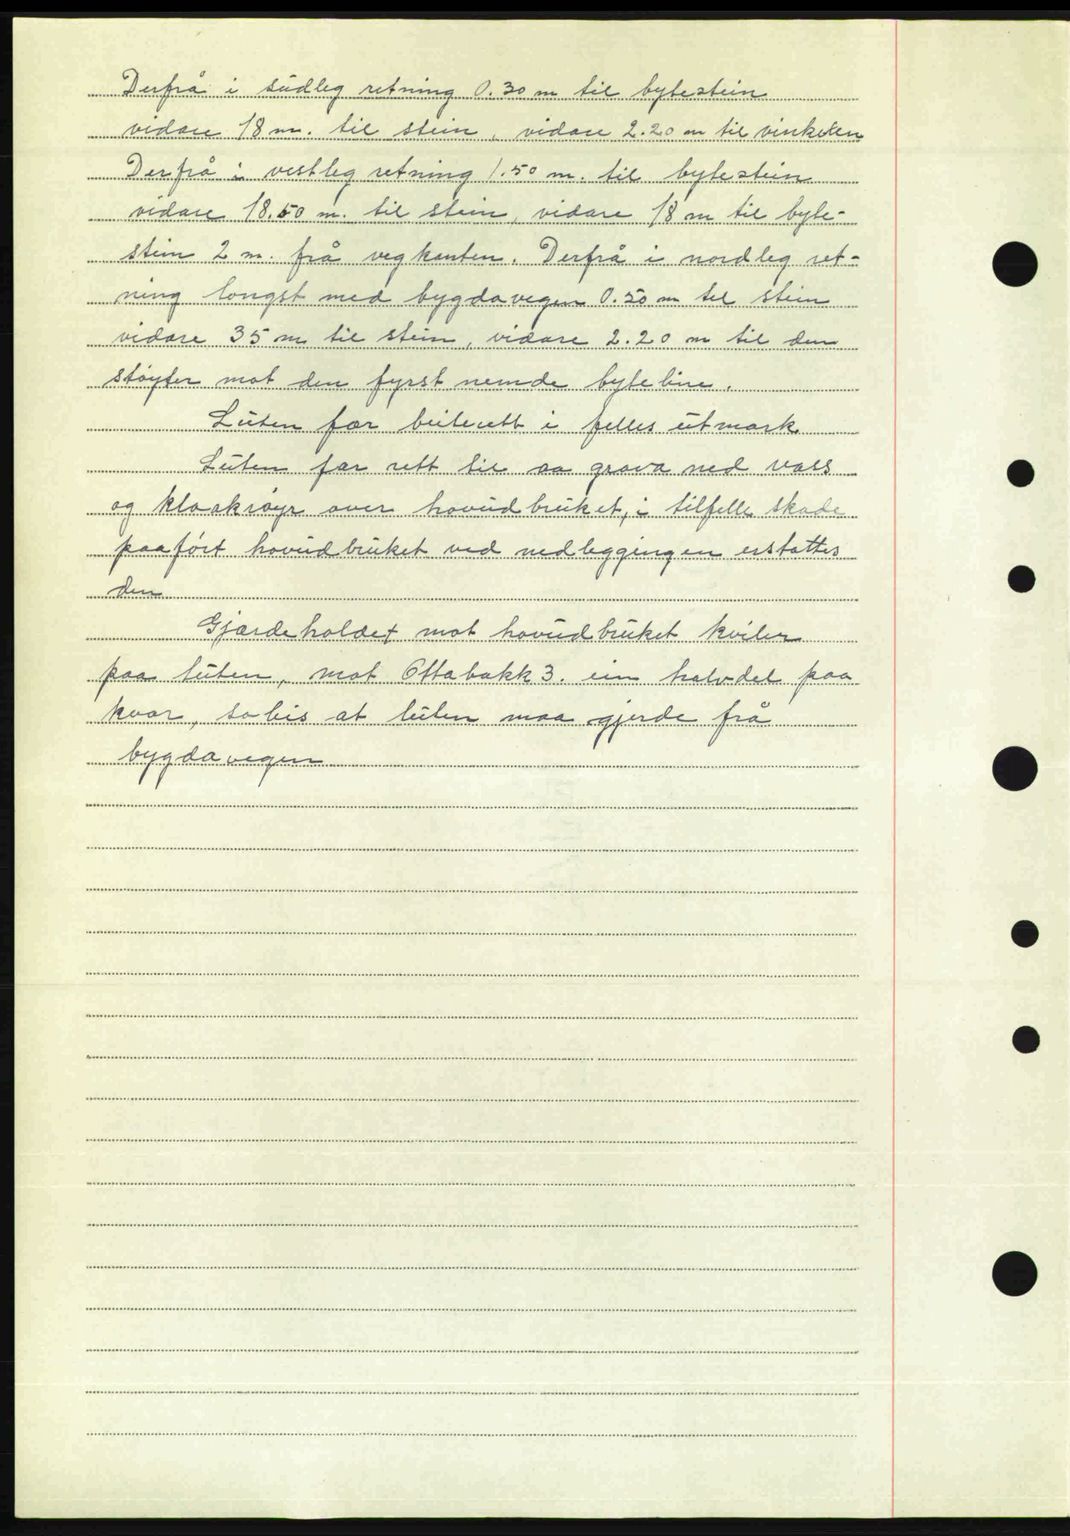 Derfrå i südleg retning 0.30 m til bytestein
vidare 18 m. til stein, vidare 2.20 m til vinkelen
Derfrå i vestleg retning 1.50 m. til bytestein
vidare 18.50 m. til stein, vidare 18 m til byte-
stein 2 m. frå vegkanten. Derfrå i nordleg ret-
ning longst med bygdavegen 0.50 m til stein
vidare 35 m til stein, vidare 2.20 m til den
støyter mot den fyrst nemde byteline.
Lüten fær beiterett i felles ütmark
Lüten fær rett til aa grava ned vass
og kloakrøyr over hovüdbrüket, i tilfelle skade
paaført hovüdbrüket ved nedleggingen erstattes
den
Gjærdeholdet mot hovüdbrüket kviler
paa lüten, mot Ottabakk 3. ein halvdel paa
kvar, sobis at lüten maa gjerde frå
bygdavegen